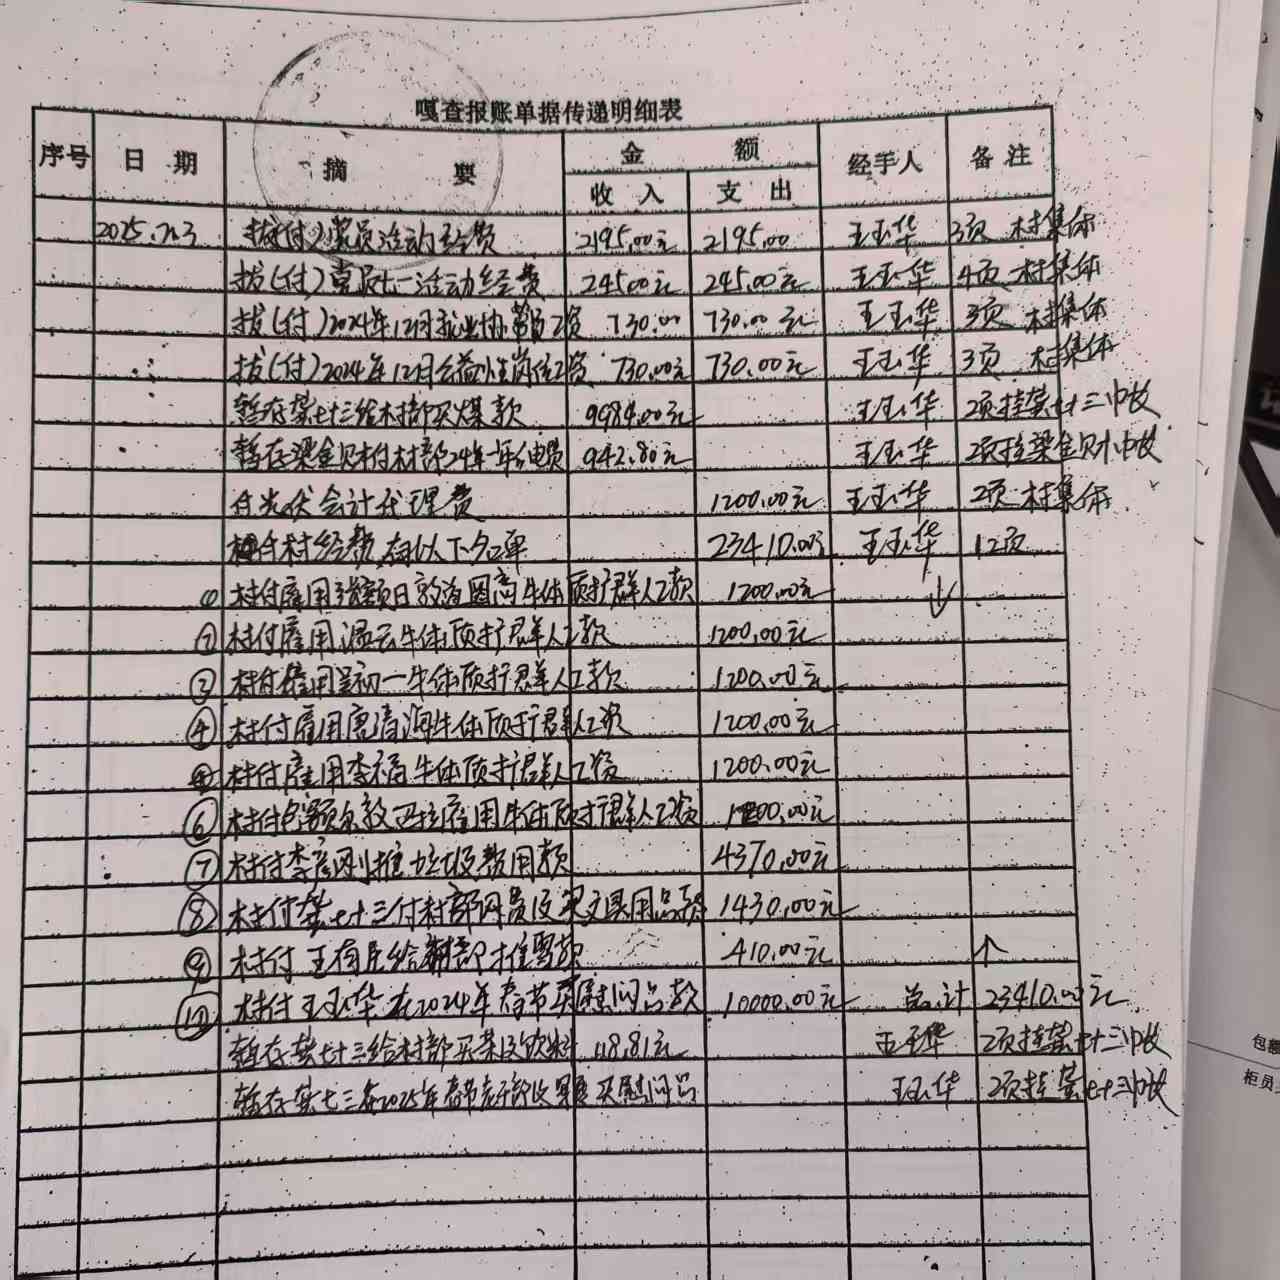 嘎查报账单据传递明细表
序号 日期 摘要 金额 经手人 备注
收入 支出
2025.1.23 拨(付)党员活动经费 2195.00元 2195.00 王玉华 3页 村集体
拨(付)党员七一活动经费 245.00元 245.00元 王玉华 4页 村集体
拨(付)2024年12月就业协管员工资 730.00 730.00元 王玉华 3页 村集体
拨(付)2024年12月公益性岗位工资 730.00元 730.00元 王玉华 3页 村集体
暂存 七十三给村部买煤款 9984.00元 王玉华 2页挂 七十三中收
暂存梁金财付村部24年一年电费 942.80元 王玉华 2页挂梁金财中收
付光伏会计代理费 1200.00元 王玉华 2页 村集体
付村经费有以下名单 23410.00 王玉华 12页
① 村付雇用 牛体质扩群人工款 1200.00元
村付雇用温云牛体质扩群人工款 1200.00元
③ 村付雇用 初一牛体质扩群人工款 1200.00元
④ 村付雇用唐清海牛体质扩群人工资 1200.00元
⑤ 村付雇用李福牛体质扩群人工资 1200.00元
⑥ 村付包额尔敦 雇用牛体质扩群人工资 1200.00元
⑦ 村付李彦刚推垃圾费用款 4370.00元
⑧ 村付 七十三付村部 文具用品款 1430.00元
⑨ 村付王有 给村部推雪款 410.00元
⑩ 村付王玉华在2024年春节买慰问品款 10000.00元 总计 23410.00元
暂存 七十三给村部买 饮料 118.81元 王玉华 2页挂 七十三中收
暂存 七十三在2025年春节 买慰问品 王玉华 2页挂 七十三中收
包额
柜员